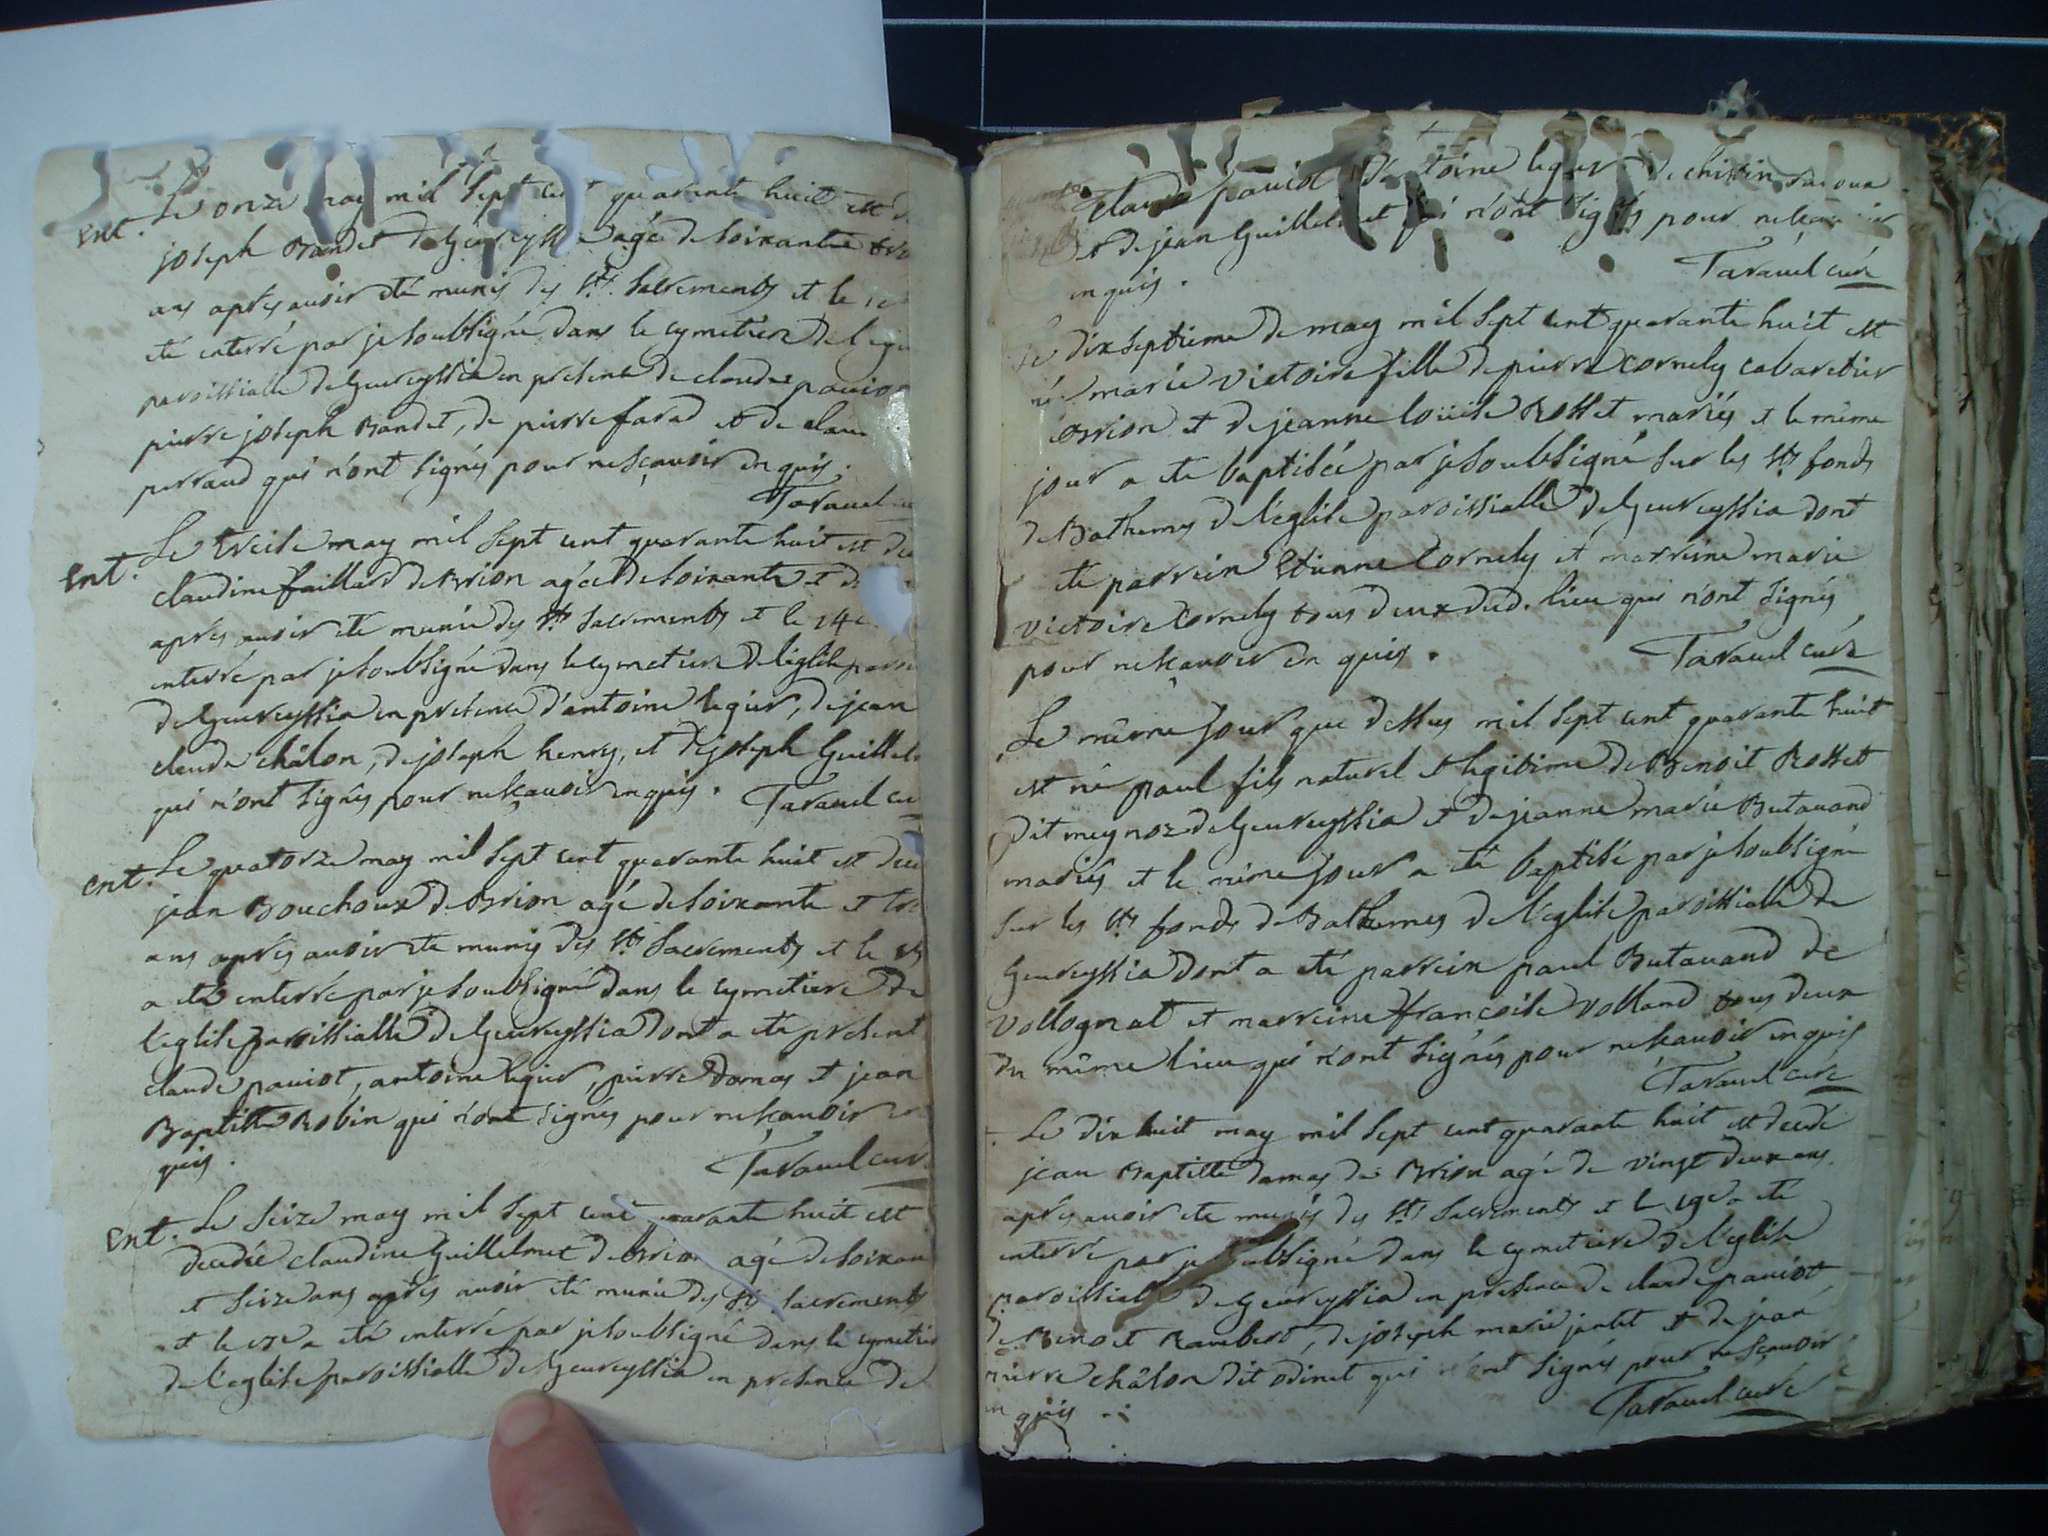 Ent. Le onze may mil sept cent quarante huit est
joseph Bandet de Geureyssia agé de soixante
ans apres avoir eté munis des Sts. sacrements et le
eté enterré par je soubsigné dans le cymetiere de
paroissialle de Geureyssia en presence de claude paviot
pierre joseph Bandet, de pierre farad et de
perraud qui n'ont signés pour ne sçavoir enquis.
Tavaud
Ent. Le treise may mil sept cent quarante huit est
claudine faillard de Brion agée de soixante et
apres avoir eté munie des Sts sacrements et le 14e
enterré par je soubsigné dans le cymetiere de l'eglise
de Geureyssia en presence d'antoine legier, de jean
claude châlon, de joseph henry, et de joseph
qui n'ont signés pour ne sçavoir enquis. Tavaud
Ent. Le quatorze may mil sept cent quarante huit est
jean Bouchoux de Brion agé de soixante et
ans apres avoir eté munis des Sts sacrements et le
a eté enterré par je soubsigné dans le cymetiere de
l'eglise paroissialle de Geureyssia dont a eté present
claude paviot, antoine legier, pierre damas et jean
Baptiste Robin qui n'ont signés pour ne sçavoir
quis. Tavaud
Ent. Le seize may mil sept cent quarante huit est
decedée claudine Guillelmet de Brion agé de
et seize ans après avoir eté munie des Sts sacrements
et le 17e a eté enterré par je soubsigné dans le
de l'eglise paroissialle de Geureyssia en presence de
claude paviot d'antoine legier de
et de jean n'ont signés pour
enquis. Tavaud curé
Le dixseptieme de may mil sept cent quarante huit est
née marie victoire fille de pierre Cornely cabaretier
à Brion et de jeanne loüise Rosset mariés et le même
jour a eté baptisée par je soubsigné sur les Sts fonds
de Bathemes de l'eglise paroissialle de Geureyssia dont
eté parrein Etienne Cornely et marreine marie
victoire Cornely tous deux dud. lieu qui n'ont signés
pour ne sçavoir en quis. Tavaud curé
Le même jour que dessus mil sept cent quarante huit
est né paul fils naturel et legitime de Benoit Rosset
dit meynoz de Geureyssia et de jeanne marie Butavand
mariés et le même jour a eté baptisé par je soubsigné
sur les Sts fonds de Bathemes de l'eglise paroissialle de
Geureyssia dont a eté parrein paul Butavand de
vollognat et marreine françoise volland tous deux
du même lieu qui n'ont signés pour ne sçavoir enquis
Tavaud curé
Le dix huit may mil sept cent quarante huit est decedé
jean Baptiste damas de Brion agé de vingt deux ans
après avoir eté munis des Sts sacrements et le 19e a eté
enterré par je soubsigné dans le cymetiere de l'eglise
paroissialle de Geureyssia en presence de claude paviot
de Benoit Rambert, de joseph marie jantet et de jean
pierre châlon dit odinet qui n'ont signés pour ne sçavoir
en quis. Tavaud curé